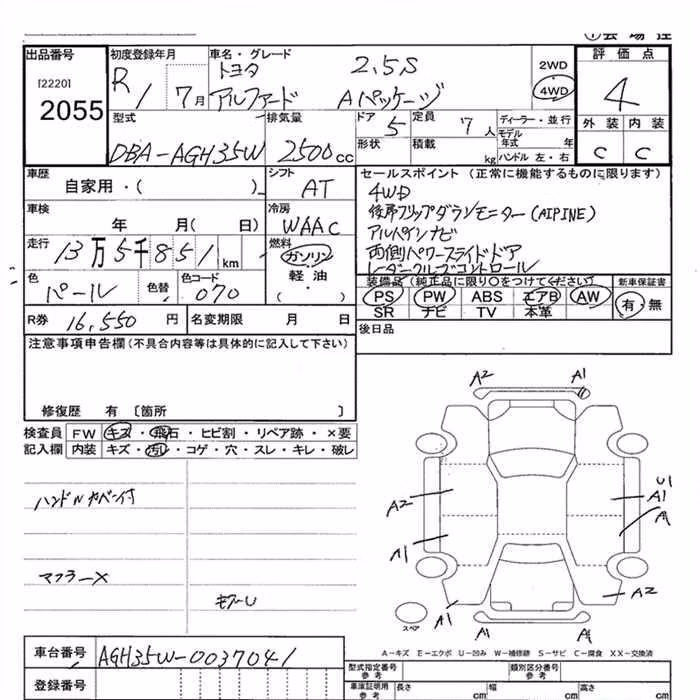 ①会場控
出品番号
[2220]
2055
初度登録年月
R1 7月
車名・グレード
トヨタ 2.5S
アルファード Aパッケージ
2WD
4WD
評価点
4
外装 内装
C C
型式
DBA-AGH35W
排気量
2500cc
ドア
5
定員
7人
ディーラー・並行
形状
積載
kg
モデル
年式 年
ハンドル 左・右
車歴
自家用・( )
シフト
AT
セールスポイント (正常に機能するものに限ります)
4WD
後席フリップダウンモニター (AlPINE)
アルパインナビ
両側パワースライドドア
レーダークルーズコントロール
車検
年 月( 日)
冷房
WAAC
走行
13万5千851km
燃料
ガソリン
軽油
( )
色
パール
色替
色コード
070
装備品 (純正品に限り○をつけてください)
新車保証書
PS PW ABS エアB AW
SR ナビ TV 本革
有・無
R券 16,550円
名変期限 月 日
後日品
注意事項申告欄 (不具合内容等は具体的に記入して下さい)
修復歴 有 〔箇所 〕
検査員 FW キズ・飛石・ヒビ割・リペア跡・×要
記入欄 内装 キズ・汚れ・コゲ・穴・スレ・キレ・破レ
ハンドルカバー付
マフラーX
A2 A1
A2
U1
A1
A1
A1
A2
A1
A1
スペア
A-キズ E-エクボ U-凹み W-補修跡 S-サビ C-腐食 XX-交換済
車台番号 AGH35W-0037041
登録番号
型式指定番号
参考
類別区分番号
参考
車庫証明用
参考
長さ cm 幅 cm 高さ cm